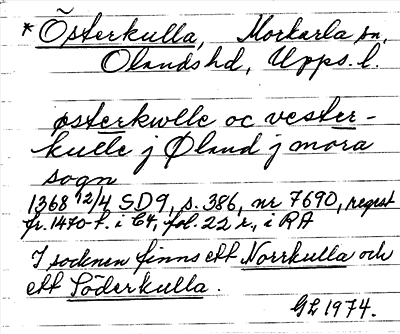 *Österkulla, Morkarla sn,
Olands hd, Upps. l.
østerkwlle oc vester-
kulle j Øland j mora
sogn
1368 12/4 SD9, s. 386, nr 7690, regest
fr. 1470-t. i C4, fol. 22 r, i RA
I socknen finns ett Norrkulla och
ett Söderkulla.
GL 1974.